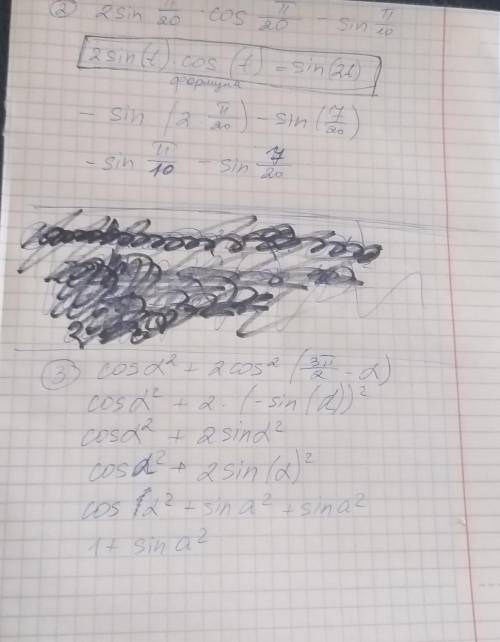 ② 2sin π/20 · cos π/20 - sin π/10
2sin(t)·cos(t)=sin(2t)
формула
- sin (2 π/20) - sin(7/20)
- sin π/10 - sin 7/20
③ cosα² + 2cos² (3π/2 - α)
cosα² + 2 · (-sin(α))²
cosα² + 2sinα²
cosα² + 2sin(α)²
cos α² + sin a² + sin a²
1 + sin a²